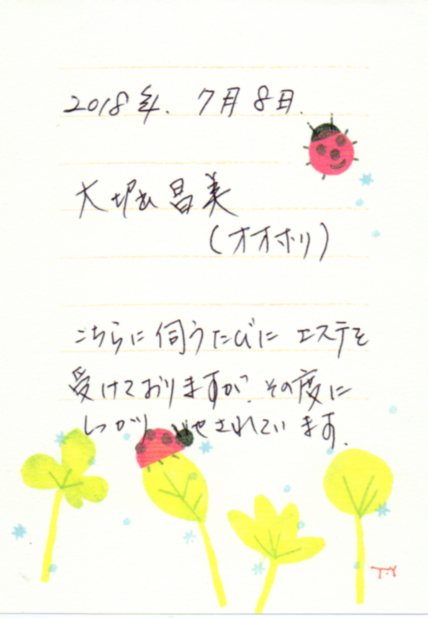 2018年. 7月8日.
大堀昌美
(オオホリ)
こちらに伺うたびに エステを
受けておりますが、その度に
しっかり いやされています.
T.Y